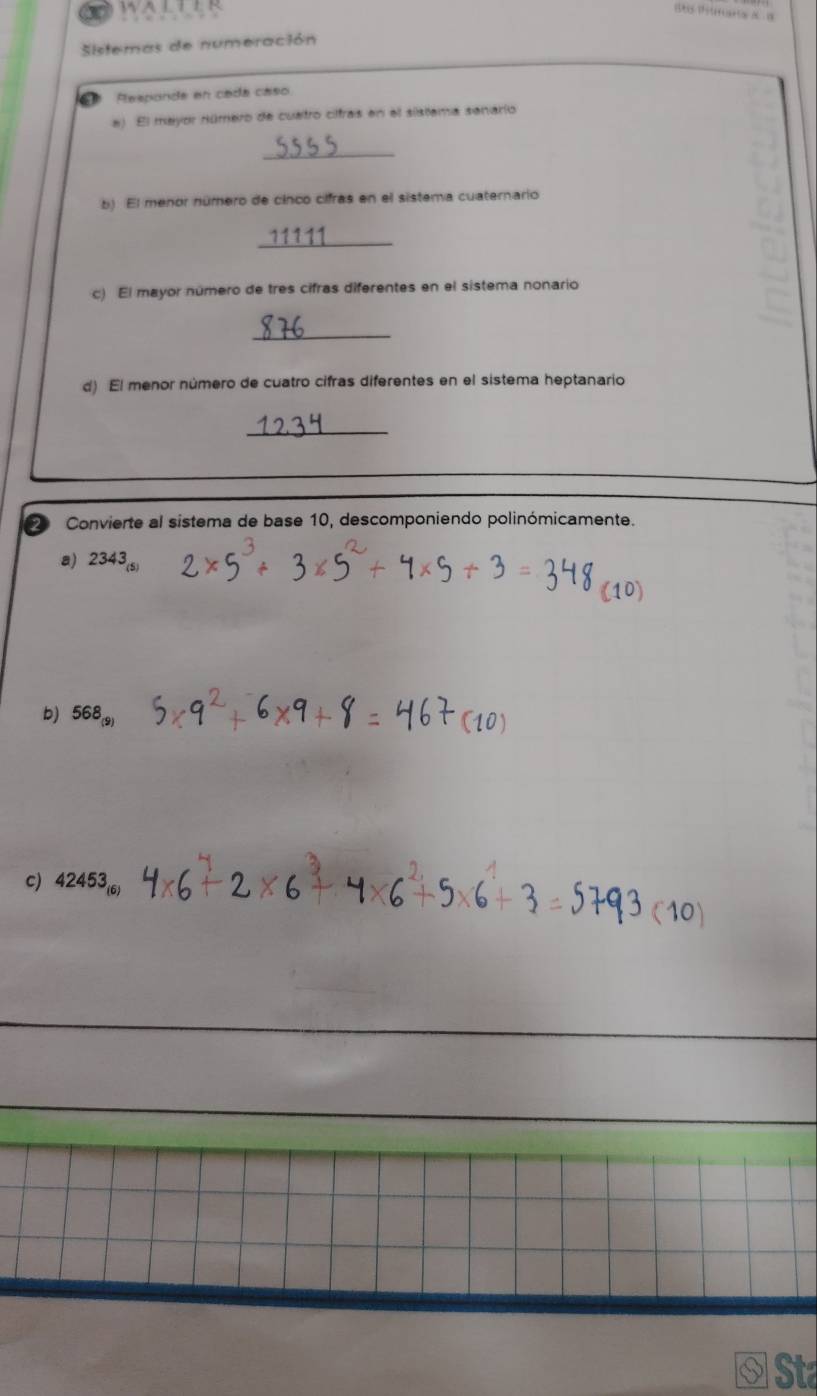 WALTER
Sistemas de numeración
1 Responde en cada caso.
a) El mayor número de cuatro cifras en el sistema senario
5555
b) El menor número de cinco cifras en el sistema cuaternario
11111
c) El mayor número de tres cifras diferentes en el sistema nonario
876
d) El menor número de cuatro cifras diferentes en el sistema heptanario
1234
2 Convierte al sistema de base 10, descomponiendo polinómicamente.
a) 2343(5) 2×5³+ 3×5²+ 4×5 + 3 = 348 (10)
b) 568(9) 5×9²+ 6×9+8 = 467 (10)
c) 42453(6) 4×6⁴+ 2×6³+ 4×6²+5×6¹+ 3 = 5793 (10)
Intelectum
St